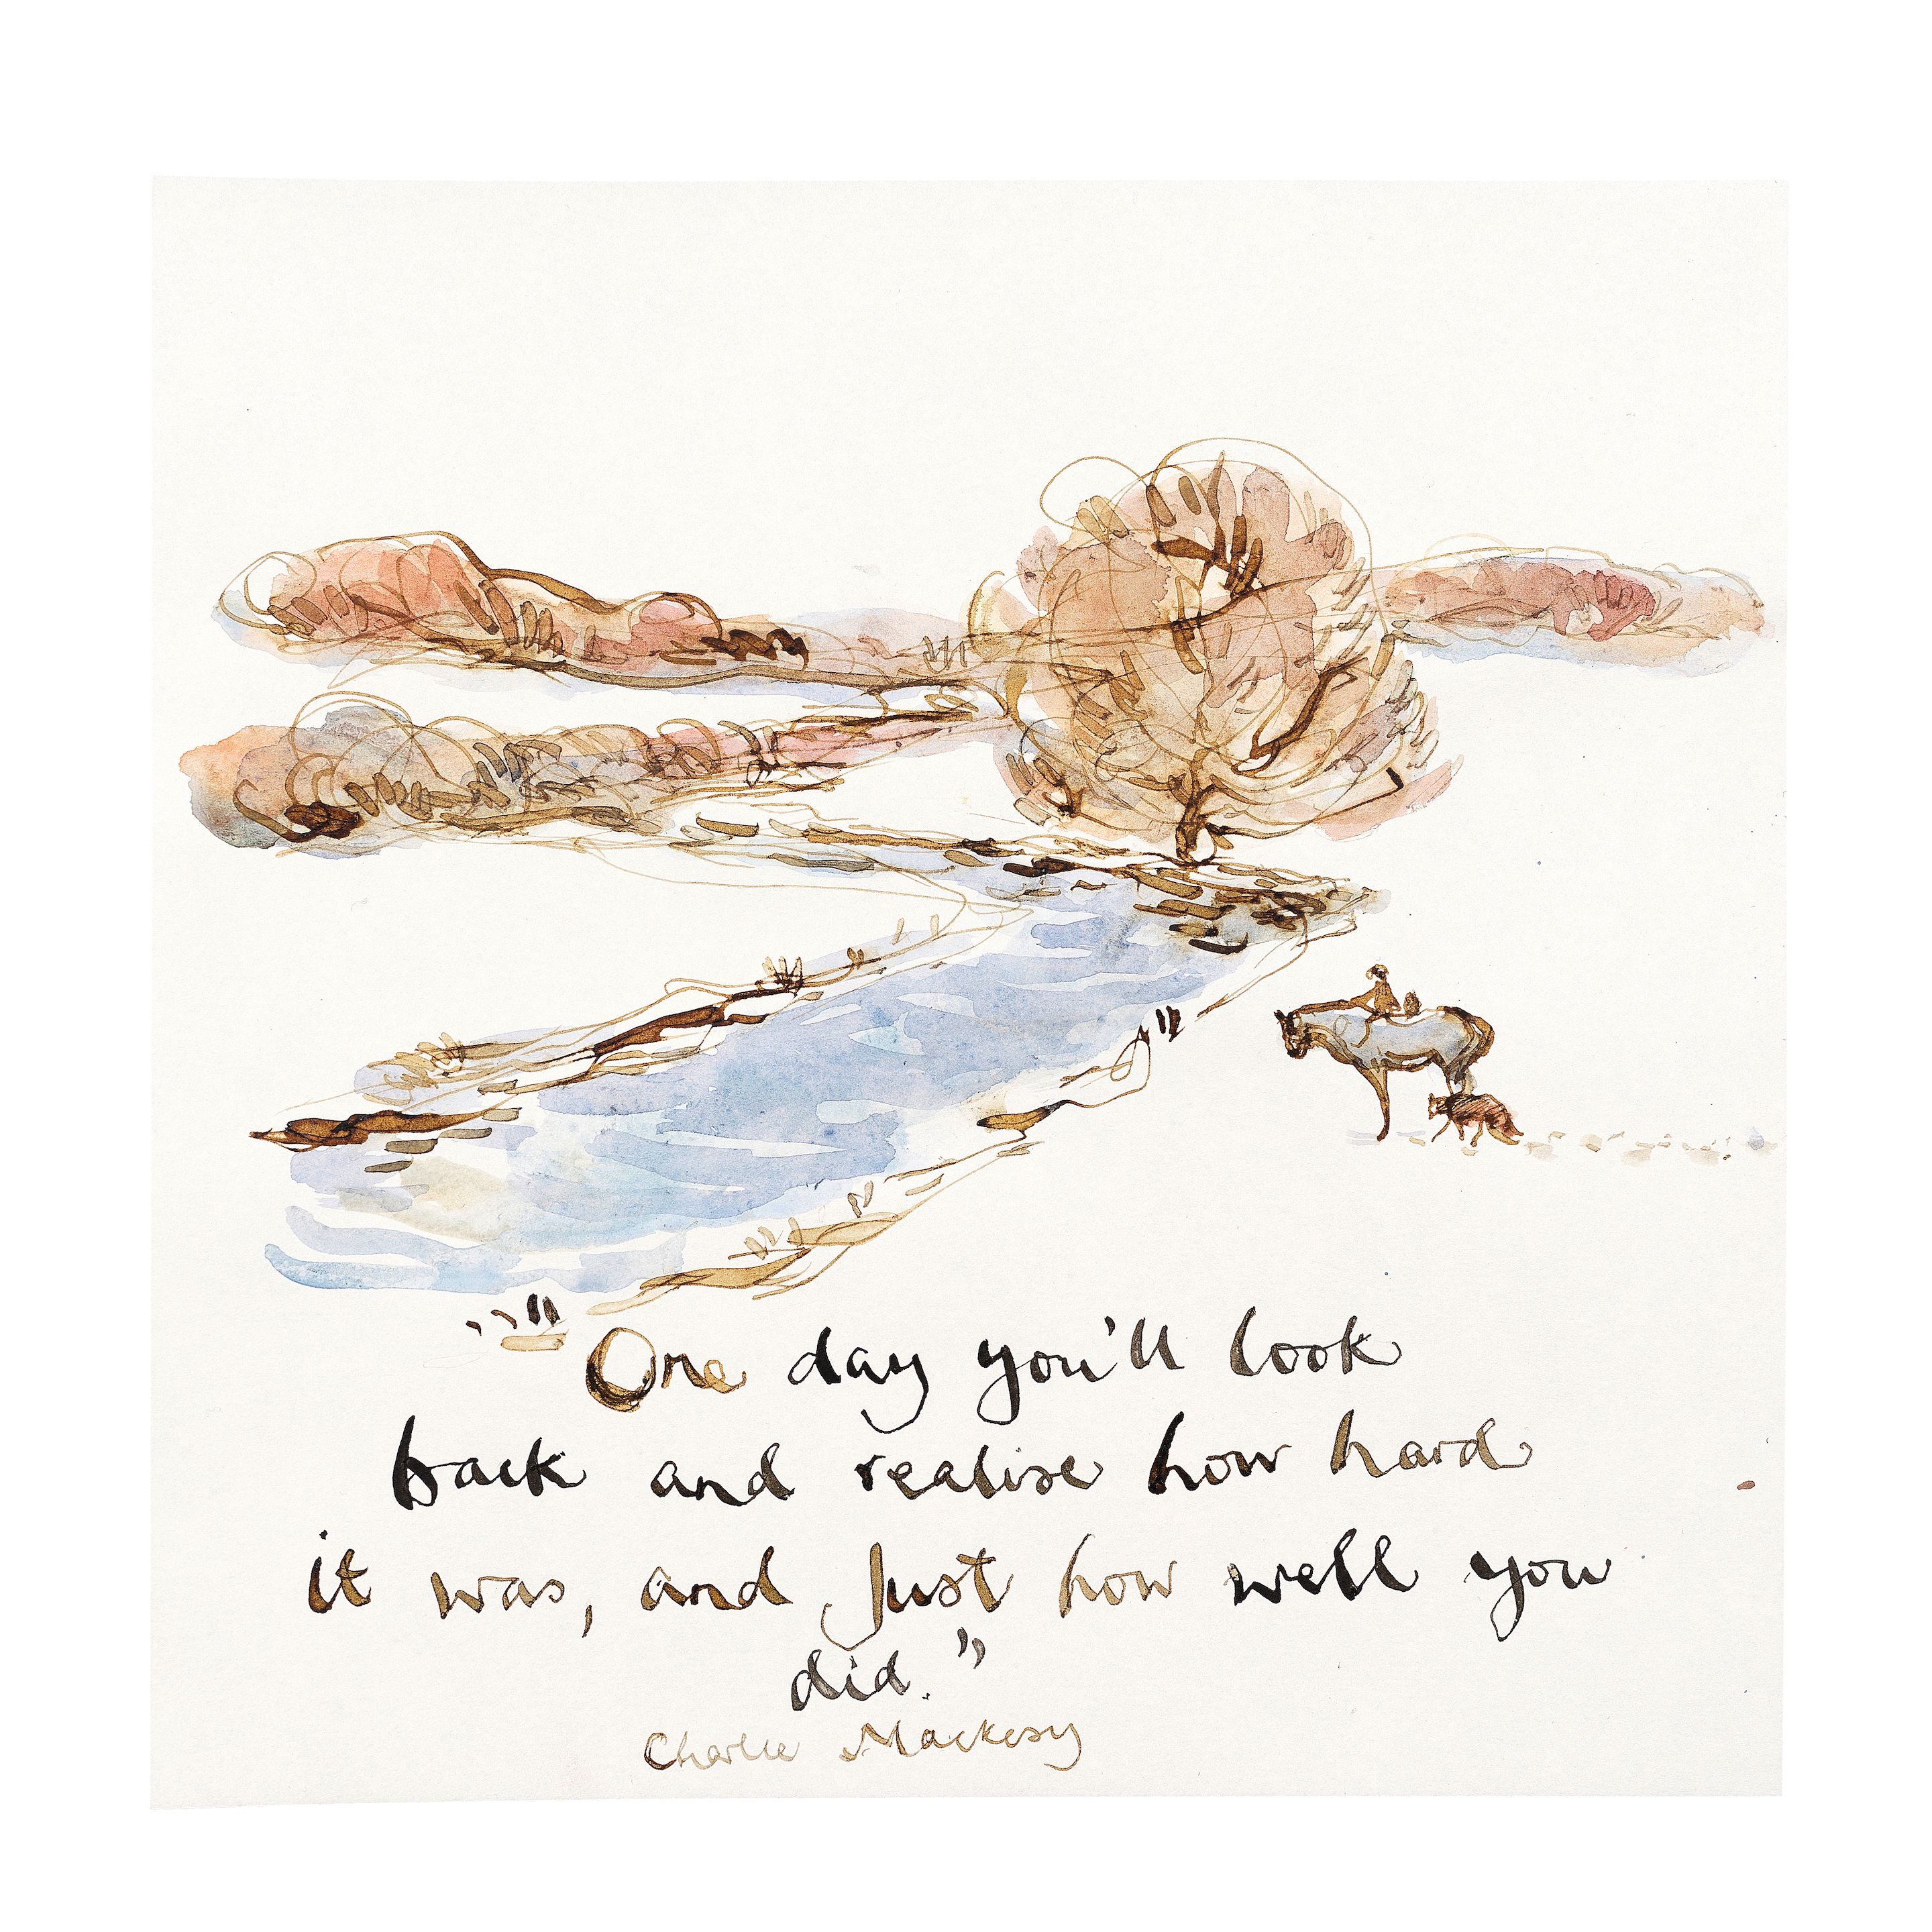 "One day you'll look
back and realise how hard
it was, and just how well you
did."
Charlie Mackesy